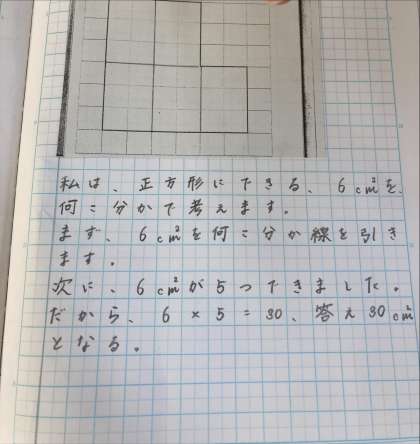 私は、正方形にできる、6cm²を、
何こ分かで考えます。
まず、6cm²を何こ分か線を引き
ます。
次に、6cm²が5つできました。
だから、6×5=30、答え30cm²
となる。